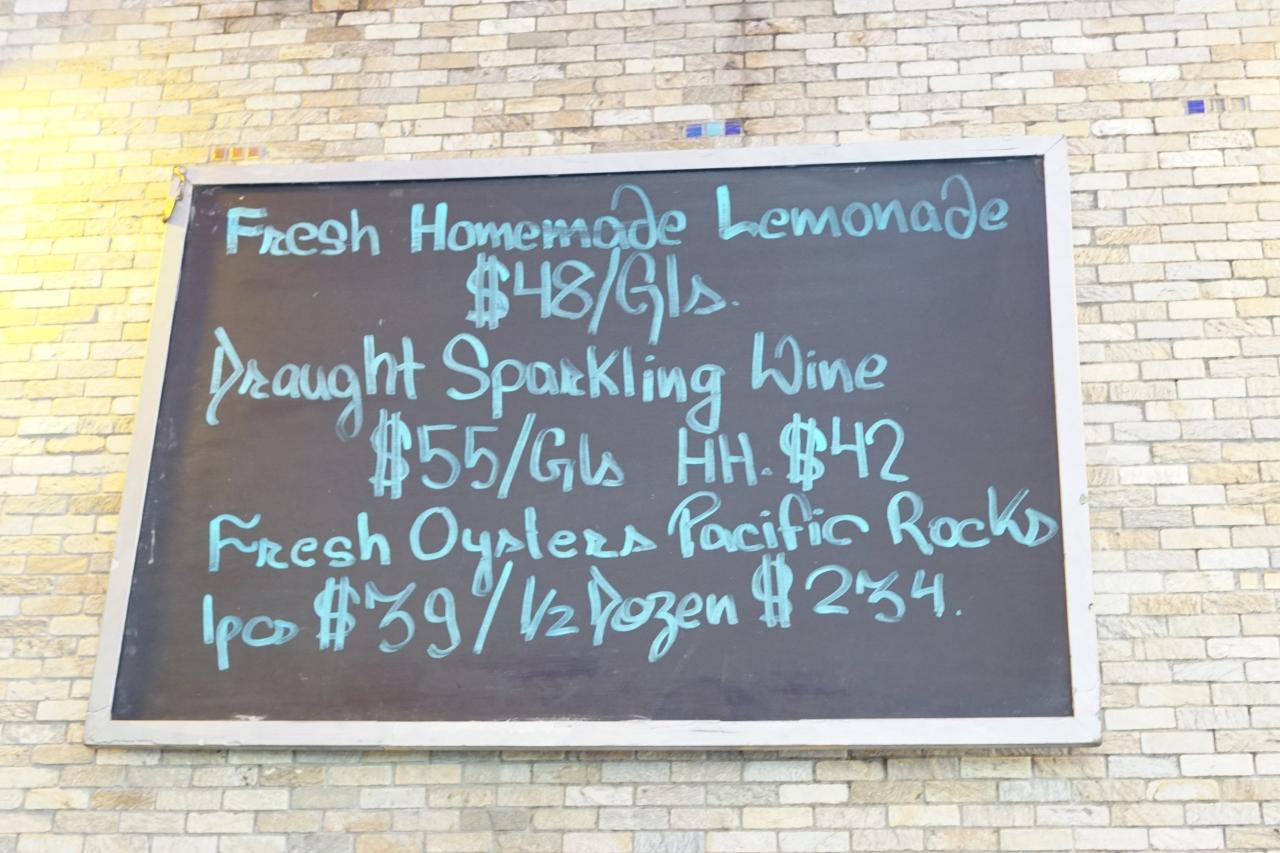 Fresh Homemade Lemonade
$48/Gls.
Draught Sparkling Wine
$55/Gls HH. $42
Fresh Oysters Pacific Rocks
1pcs $39/½ Dozen $234.